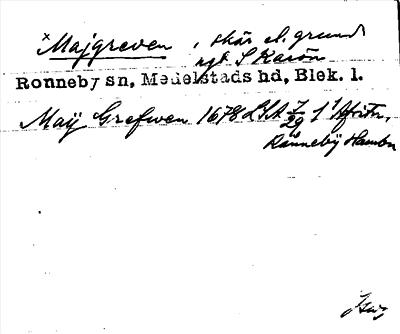 × Majgreven, skär el. grund
sydl S Karön
Ronneby sn, Medelstads hd, Blek. l.
Maÿ Grefwen 1678 LSA 7/29 1
Ronnebÿ Hambn